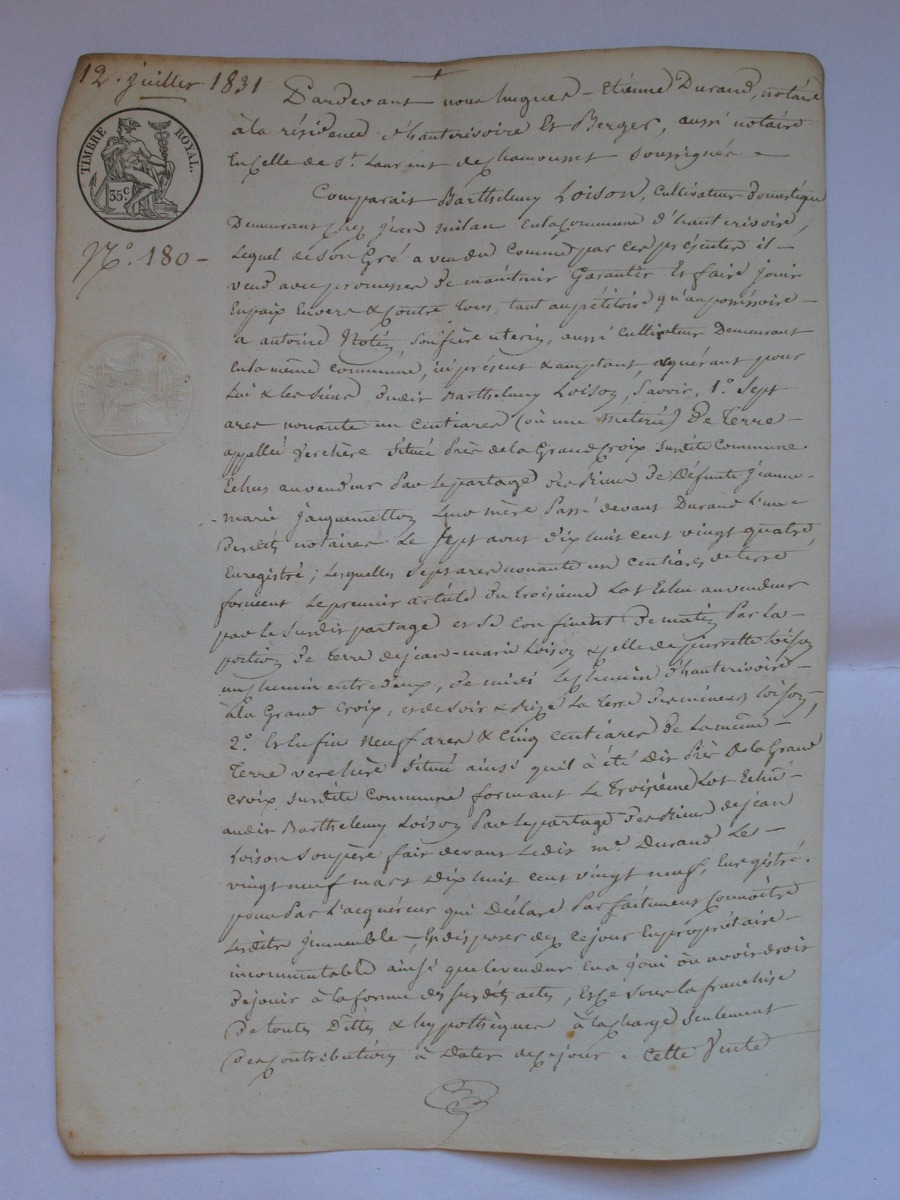 12. juillet 1831
TIMBRE ROYAL.
35 c
N.º 180 -
Pardevant nous hugues - Etienne Durand, notaire
à la résidence d'hauterivoire Et Berger, aussi notaire
En celle de St. Laurent de chamousset soussignés -
Comparait Barthelemy Loison, Cultivateur domestique
Demeurant chez jean milan Enla Commune d'hauterivoire,
Lequel de son Gré a vendu comme par ces présentes il -
vend avec promesse De maintenir Garantir Et faire jouir
En paix Envers & contre tous, tant au pétitoire qu'au possessoire -
a antoine son frère uterin, aussi Cultivateur Demeurant
Enla même commune, ici présent & acceptant acquérant pour
Lui & les siens dudit Barthelemy Loison, Savoir, 1.º Sept
ares nonante un centiares (où une Meterée) De Terre -
appellée verchère située Près de la Grand Croix Sus dite Commune.
Echus au vendeur Par le partage des Biens De Défunte jeanne -
- marie jacquemetton Leur mère Passé devant Durand L'un -
Desdits notaires Le Sept aout dix huit cent vingt quatre,
Enregistré ; Lesquelles Sept ares nonante un centiares de terre
forment Le premier article Du troisième Lot Echu au vendeur
par le Susdit partage et se confinent De matin Par la
portion De terre de jean-marie Loison & celle de pierrette Loison
un chemin entre deux, De midi Le chemin d'hauterivoire -
à la Grand Croix, et de soir & bize La terre des mineurs Loison,
2.º Et Enfin neuf ares & cinq centiares De la même -
Terre verchère Située ainsi qu'il à été dit Près de la Grand
croix Susdite Commune formant Le Troisième Lot Echu -
audit Barthelemy Loison Par le partage des Biens de jean
Loison son père fait devant Ledit me. Durand Le -
vingt neuf mars dix huit cent vingt neuf, Enregistré.
pour Par L'acquéreur qui déclare Parfaitement connoitre
Lesdits jmmeuble, En disposer dez ce jour En propriétaire -
incommutable ainsi que le vendeur En a joui ou avoit droit
De jouir à la forme des susdits actes, Et ce sous la franchise
De toutes Dettes & hypothèques à la charge Seulement
Des contributions à Dater de ce jour. Cette Vente